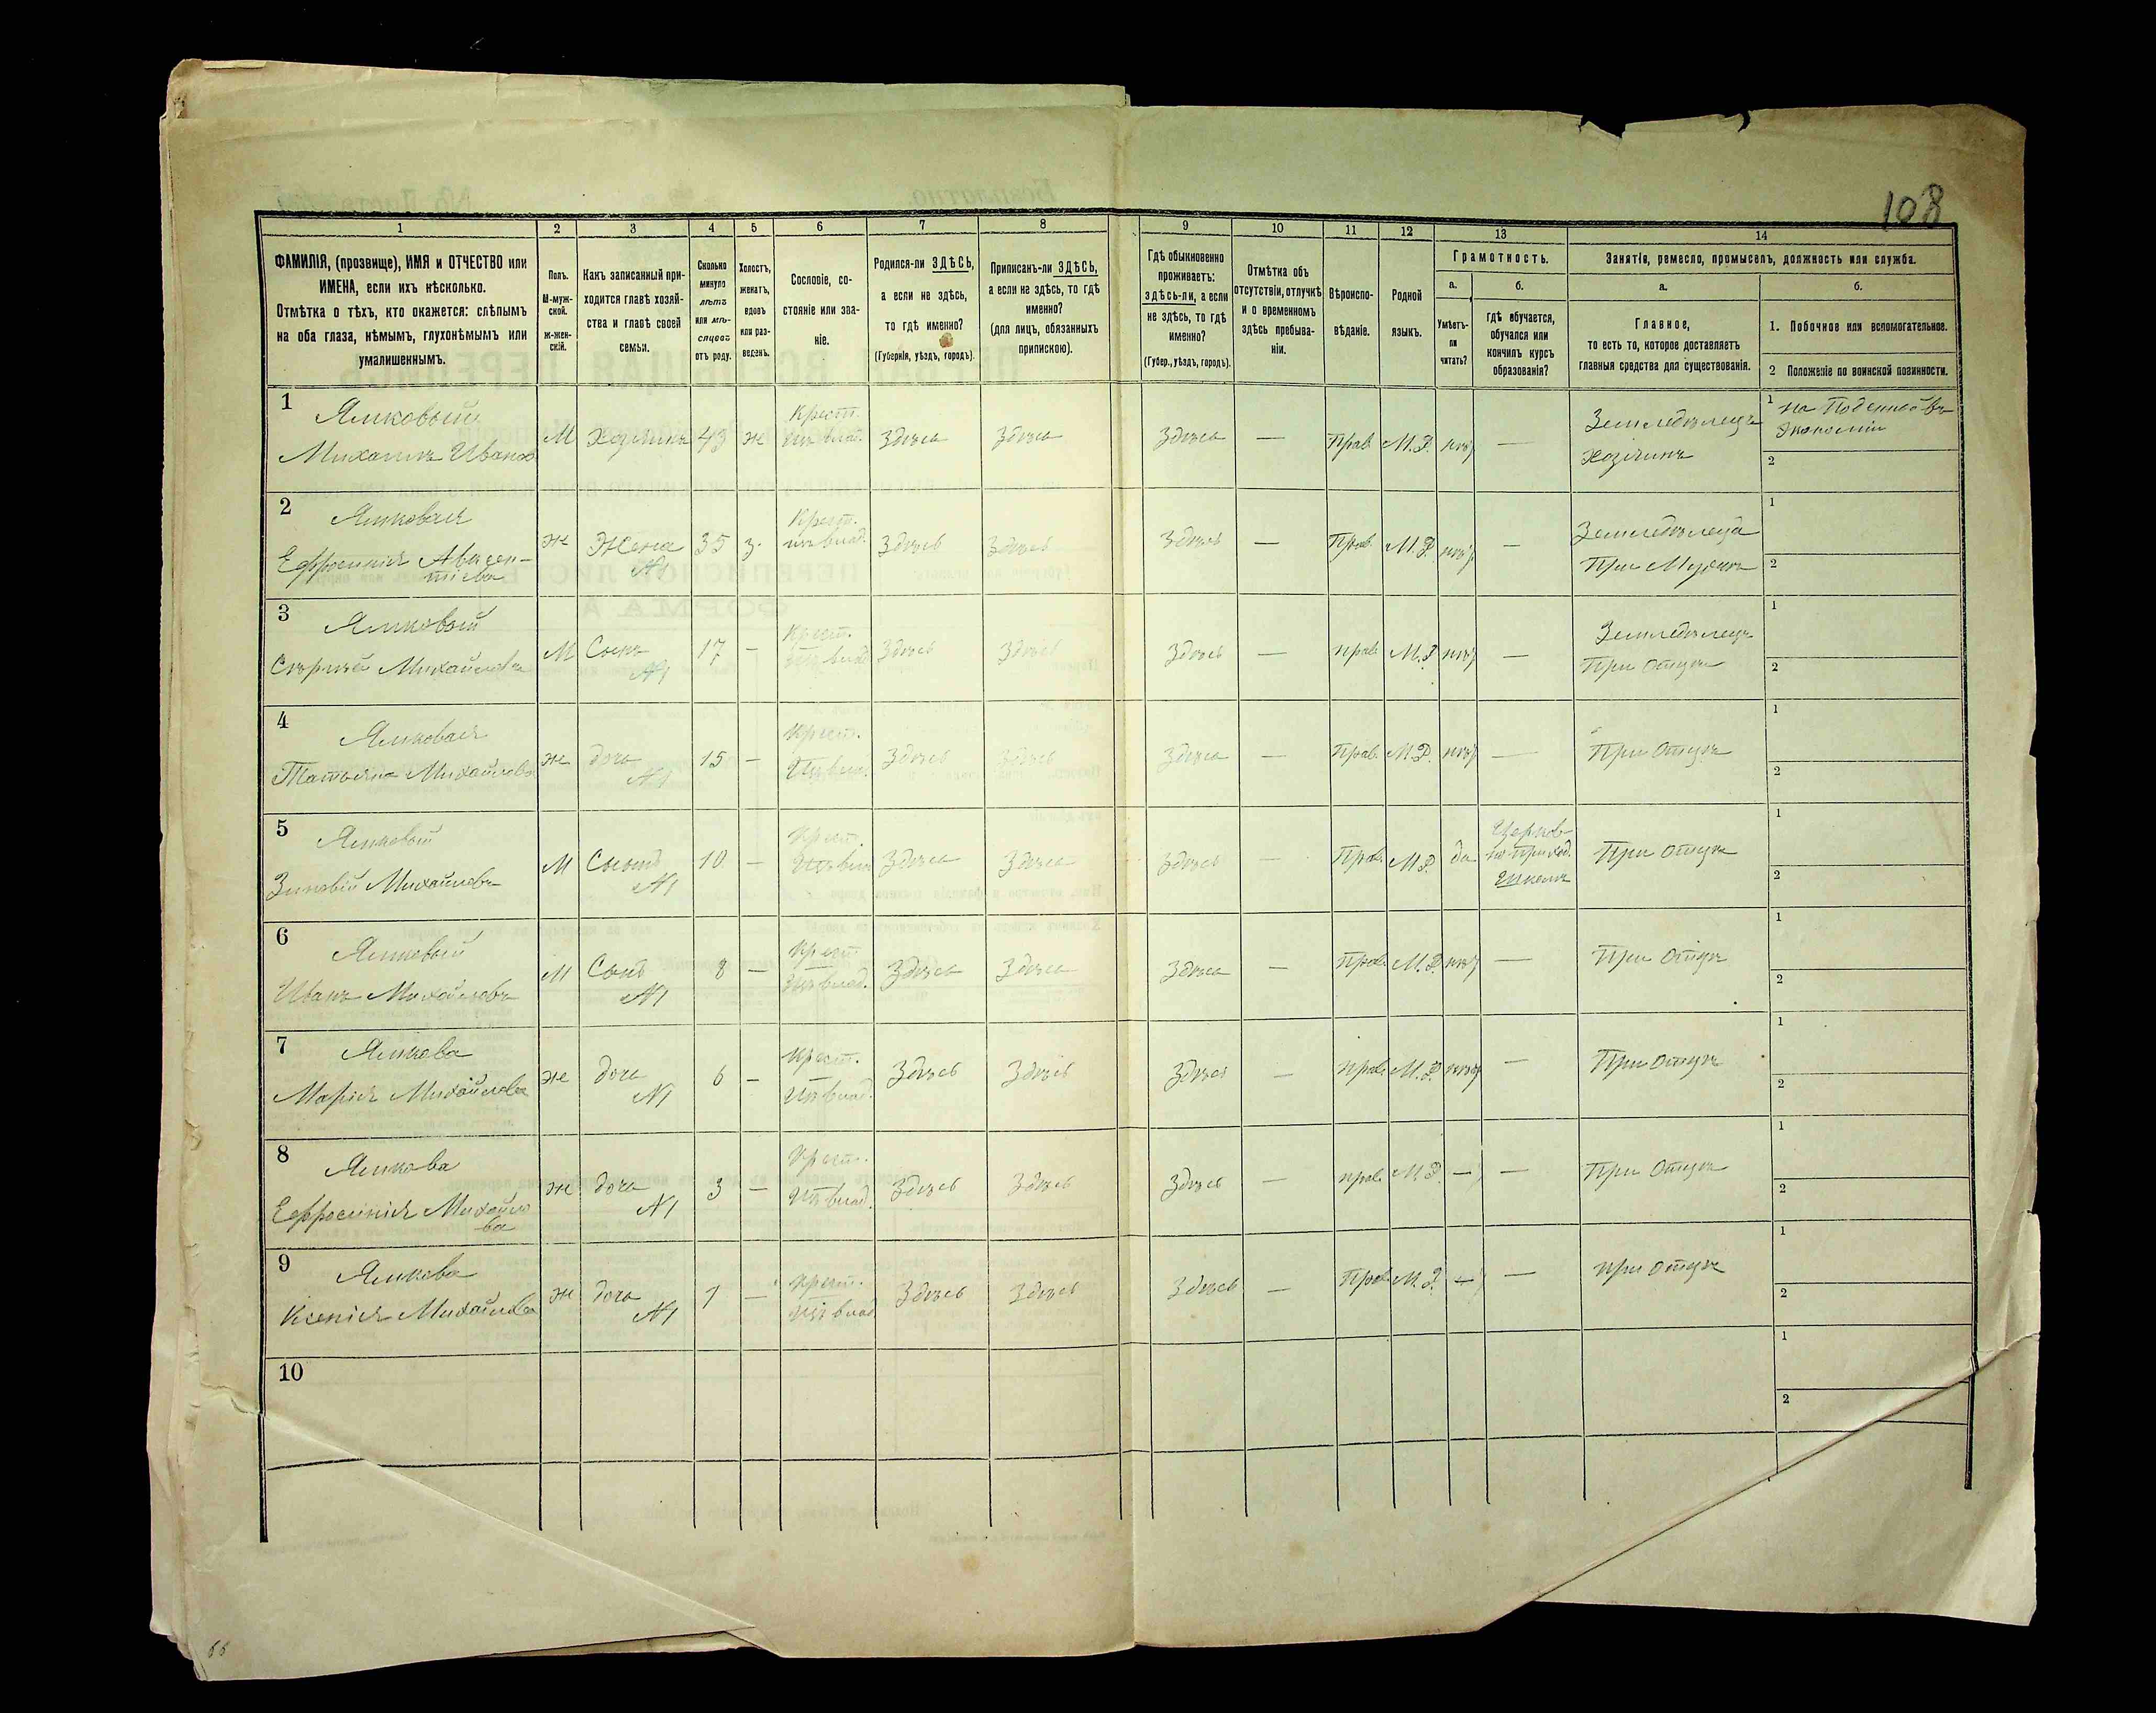 108
1 2 3 4 5 6 7 8 9 10 11 12 13 14
ФАМИЛІЯ, (прозвище), ИМЯ и ОТЧЕСТВО или
ИМЕНА, если ихъ нѣсколько.
Отмѣтка о тѣхъ, кто окажется: слѣпымъ
на оба глаза, нѣмымъ, глухонѣмымъ или
умалишеннымъ.
Полъ.
М-муж-
ской.
Ж-жен-
скій.
Какъ записанный при-
ходится главѣ хозяй-
ства и главѣ своей
семьи.
Сколько
минуло
лѣтъ
или мѣ-
сяцевъ
отъ роду.
Холостъ,
женатъ,
вдовъ
или раз-
веденъ.
Сословіе, со-
стояніе или зва-
ніе.
Родился-ли ЗДѢСЬ,
а если не здѣсь,
то гдѣ именно?
(Губернія, уѣздъ, городъ).
Приписанъ-ли ЗДѢСЬ,
а если не здѣсь, то гдѣ
именно?
(для лицъ, обязанныхъ
припискою).
Гдѣ обыкновенно
проживаетъ:
здѣсь-ли, а если
не здѣсь, то гдѣ
именно?
(Губер., уѣздъ, городъ).
Отмѣтка объ
отсутствіи, отлучкѣ
и о временномъ
здѣсь пребыва-
ніи.
Вѣроиспо-
вѣданіе.
Родной
языкъ.
Грамотность.
а.
Умѣетъ-
ли
читать?
б.
гдѣ обучается,
обучался или
кончилъ курсъ
образованія?
Занятія, ремесло, промыселъ, должность или служба.
а.
Главное,
то есть то, которое доставляетъ
главныя средства для существованія.
б.
1. Побочное или вспомогательное.
2 Положеніе по воинской повинности.
1
Ямковый
Михаилъ Иванов
М Хозяинъ 43 ж
Крест.
изъ влад.
Здѣсь Здѣсь Здѣсь — Прав. М.Р. нѣтъ —
Землѣдѣлецъ
Хозяинъ
1 на Поденной въ
Экономіи
2
2
Ямковая
Ефросинія Авксен-
тіева
ж Жена
№1
35 з.
Крест.
изъ влад.
Здѣсь Здѣсь Здѣсь — Прав. М.Р. нѣтъ —
Землѣдѣлеца
При Мужѣ
1
2
3
Ямковый
Сергѣй Михайловъ
М Сынъ
№1
17 —
Крест.
изъ влад
Здѣсь Здѣсь Здѣсь — прав М.Р. нѣтъ —
Землѣдѣлецъ
При Отцѣ
1
2
4
Ямковая
Татьяна Михайлова
ж дочь
№1
15 —
Крест.
Изъ влад.
Здѣсь Здѣсь Здѣсь — Прав. М.Р. нѣтъ —
При Отцѣ
1
2
5
Ямковый
Зиновій Михайловъ
М Сынъ
№1
10 —
Крест.
Изъ влад
Здѣсь Здѣсь Здѣсь — Прав. М.Р. да
Церков-
но-приход.
Школѣ
При Отцѣ
1
2
6
Ямковый
Иванъ Михайловъ
М Сынъ
№1
8 —
Крест
Изъ влад.
Здѣсь Здѣсь Здѣсь — Прав. М.Р. нѣтъ —
При Отцѣ
1
2
7
Ямкова
Марія Михайлова
ж дочь
№1
6 —
Крест.
Изъ влад.
Здѣсь Здѣсь Здѣсь — прав. М.Р. нѣтъ —
При Отцѣ
1
2
8
Ямкова
Ефросинія Михайло
ва
ж дочь
№1
3 —
Крест.
Изъ влад.
Здѣсь Здѣсь Здѣсь — прав. М.Р. — —
При Отцѣ
1
2
9
Ямкова
Ксенія Михайлова
ж дочь
№1
1 —
Крест.
Изъ влад
Здѣсь Здѣсь Здѣсь — Прав М.Р. — —
при Отцѣ
1
2
10
1
2
66